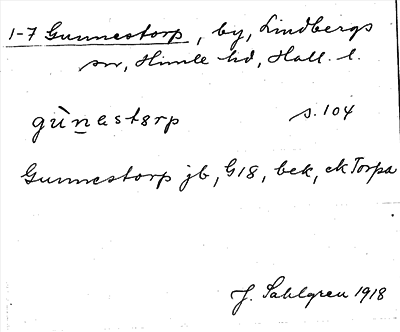 1-7 Gunnestorp, by, Lindbergs
sn, Himle hd, Hall. l.
gùnastorp s. 104
Gunnestorp jb, G18, bek, ek Torpa
J. Sahlgren 1918